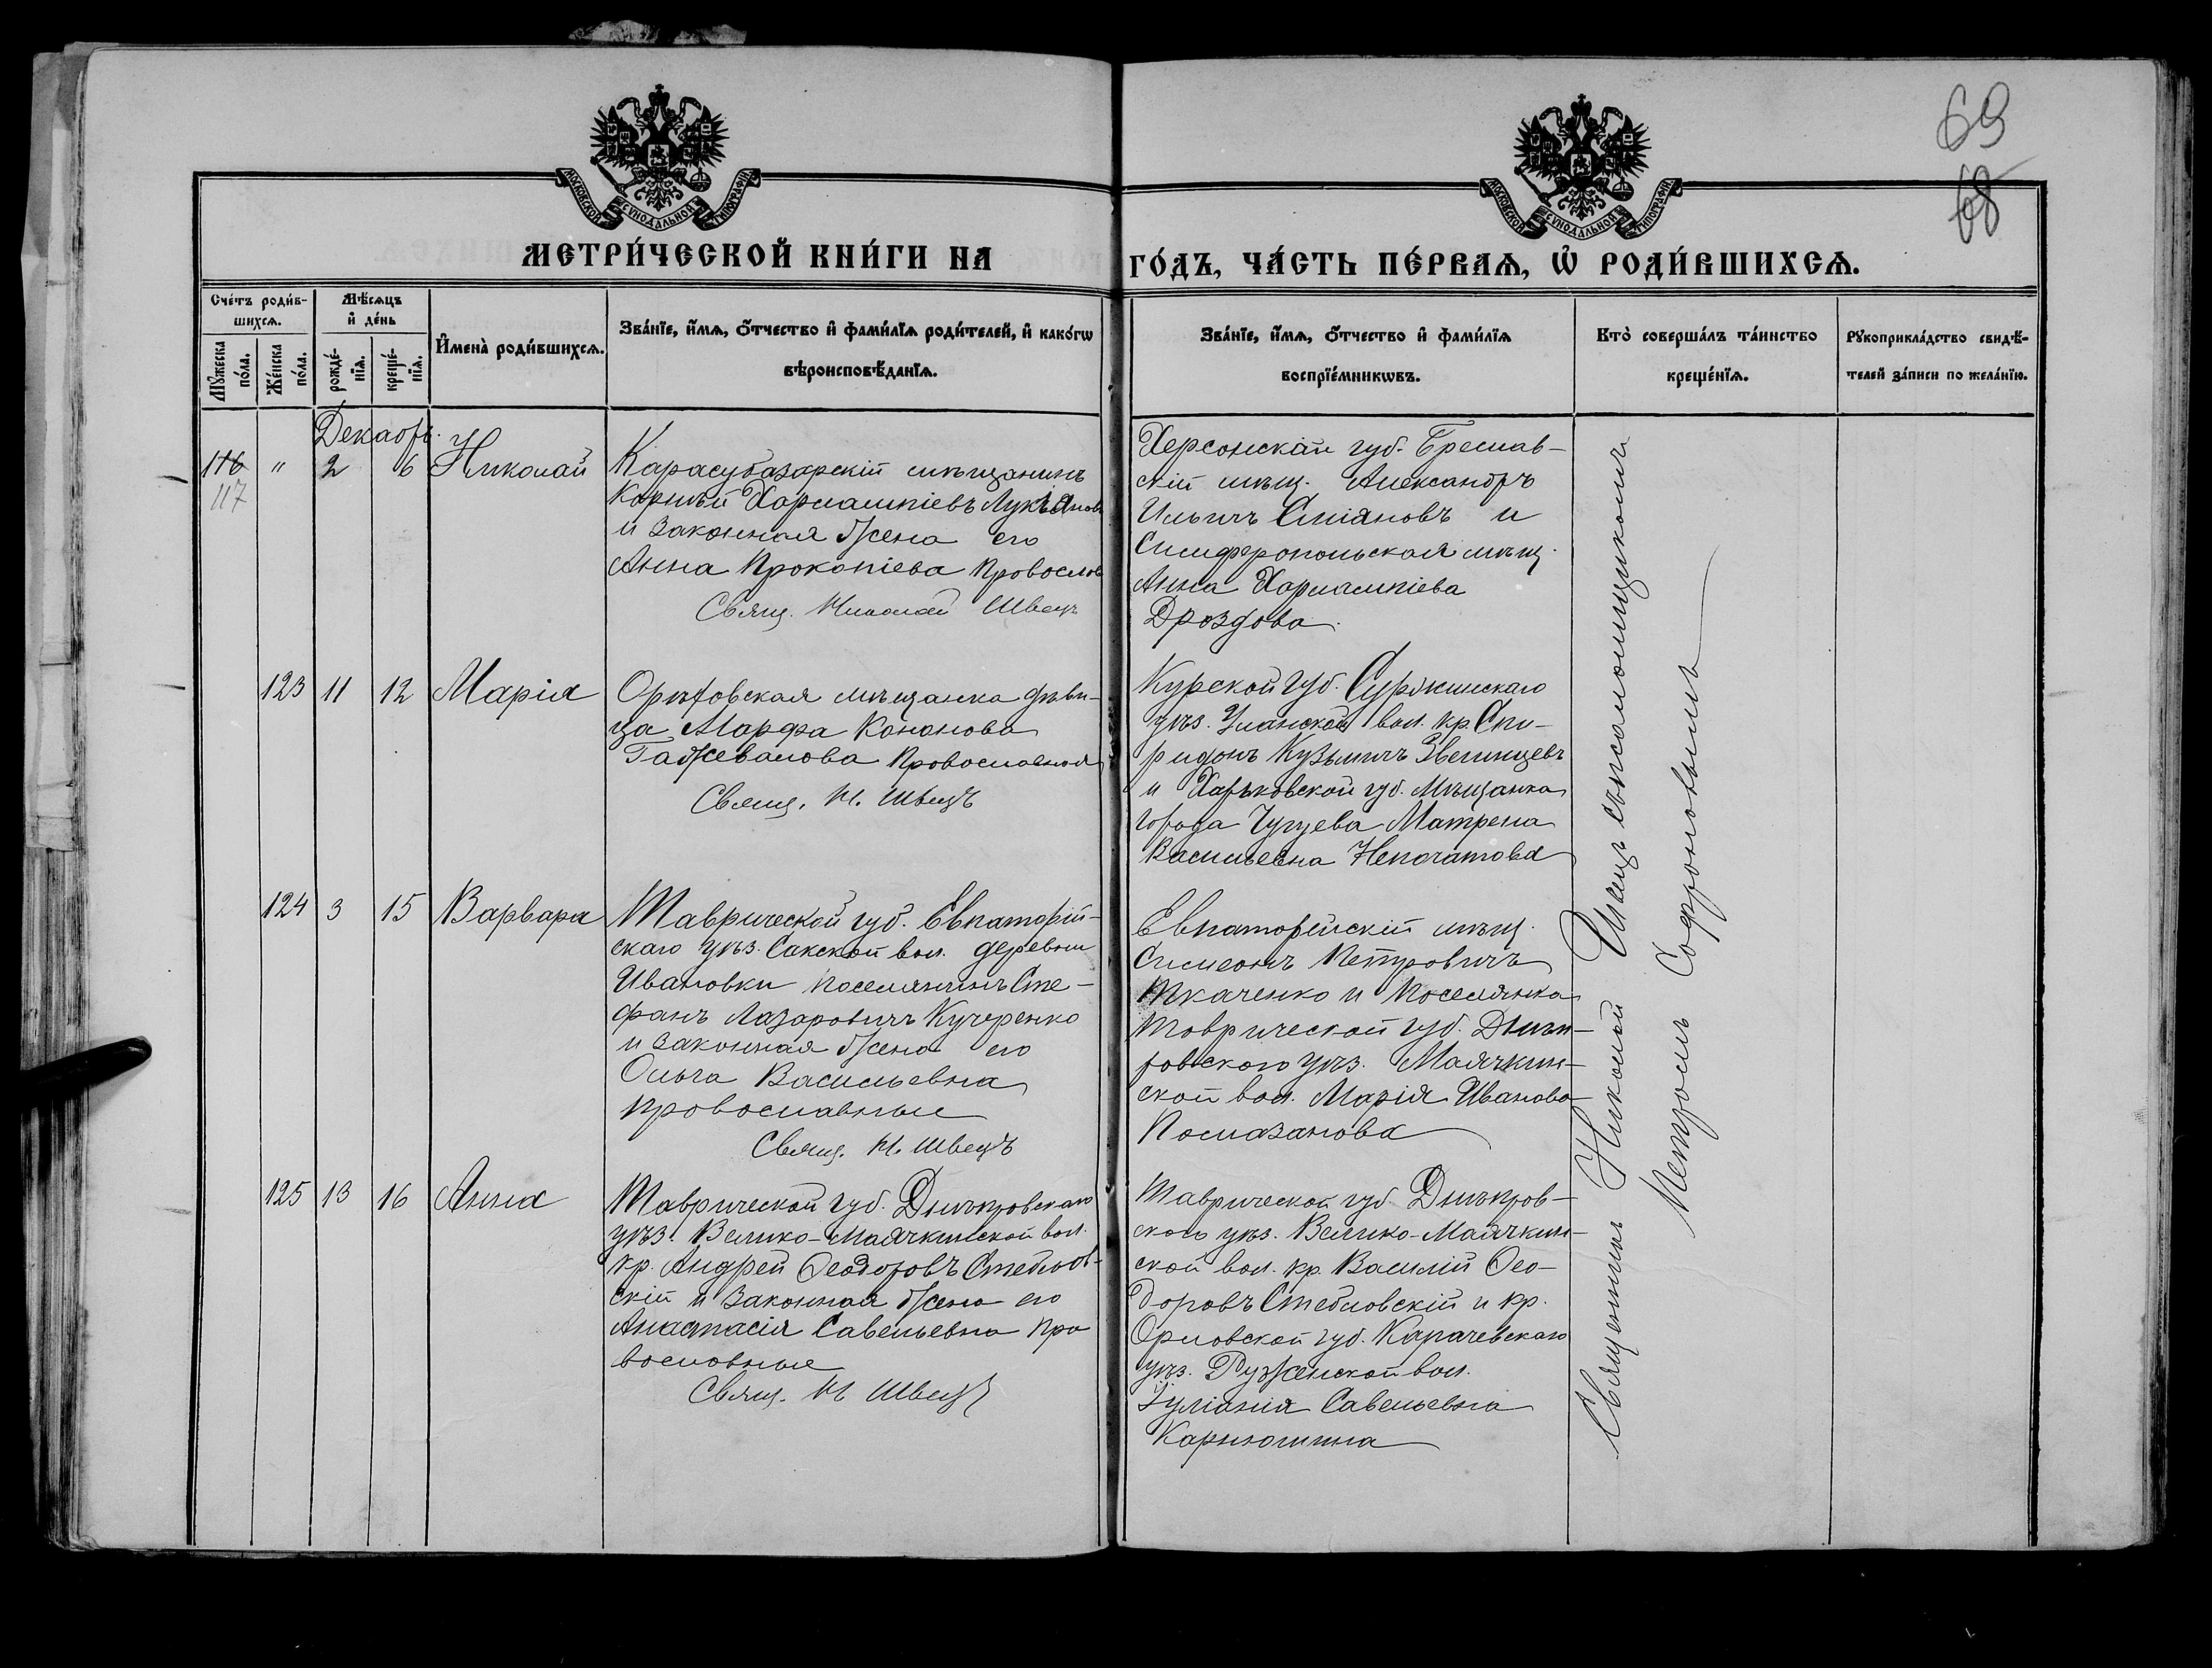 69
68
МОСКОВСКОЙ СѴНОДАЛЬНОЙ ТИПОГРАФІИ
МОСКОВСКОЙ СѴНОДАЛЬНОЙ ТИПОГРАФІИ
МЕТРИ́ЧЕСКОЙ КНИ́ГИ НА
ГО́ДЪ, ЧА́СТЬ ПЕ́РВАѦ, Ѡ҆ РОДИ́ВШИХСѦ.
Сче́тъ роди́в-
шихсѧ.
Мꙋ́жеска по́ла.
Же́нска по́ла.
Мѣ́сѧцъ
и҆ де́нь
рожде́-
нїѧ.
креще́-
нїѧ.
И҆мена̀ роди́вшихсѧ.
Зва́нїе, и҆́мѧ, ѻ҆́тчество и҆ фами́лїѧ роди́телей, и҆ како́гѡ
вѣроисповѣ́данїѧ.
Зва́нїе, и҆́мѧ, ѻ҆́тчество и҆ фами́лїѧ
воспрїе́мникѡвъ.
Кто̀ соверша́лъ та́инство
креще́нїѧ.
Рꙋкоприкла́дство свидѣ́-
телей за́писи по жела́нїю.
Декабрь.
116 " 2 6 Николай
117
Карасубазарскій мѣщанинъ
Корнѣй Харлампіевъ Лукьянов
и законная жена его
Анна Прокопіева Провослов
Свящ. Николай Швецъ
Херсонской губ. Береслав-
скій мѣщ. Александръ
Ильичъ Стіяновъ и
Симферопольская мѣщ.
Анна Харлампіева
Дроздова.
123 11 12 Марія
Орѣховская мѣщанка дѣви-
ца Марфа Кононова
Гаджевалова Провославная
Свящ. Н. Швецъ
Курской губ.
уѣз. вол. кр. Спи-
ридонъ Кузьмичъ Звегинцевъ
и Харьковской губ. Мѣщанка
города Чугуева Матрена
Васильевна Непочатова
124 3 15 Варвара
Таврической губ. Евпаторій-
скаго уѣз. Сакской вол. деревни
Ивановки поселянинъ Сте-
фанъ Лазаровичъ Кучеренко
и законная жена его
Ольга Васильевна
провославные
Свящ. Н. Швецъ
Евпаторійскій мѣщ.
Симеонъ Петровичъ
Ткаченко и Поселянка
Таврической губ. Днѣп-
ровского уѣз. Маячкин-
ской вол. Марія Иванова
Помазанова
125 13 16 Анна
Таврической губ. Днѣпровскаго
уѣз. Велико-Маячкинской вол.
кр. Андрей Ѳеодоровъ Стеблов-
скій и законная жена его
Анастасія Савельевна Про
вословные
Свящ. Н Швецъ
Таврической губ. Днѣпров-
скаго уѣз. Велико-Маячкин-
ской вол. кр. Василій Ѳео-
доровъ Стебловскій и кр.
Орловской губ. Карачевскаго
уѣз. Руженской вол.
Іуліанія Савельевна
Карнюшина
Священникъ Николай Швецъ съ псаломщикомъ
Петромъ Софроновымъ